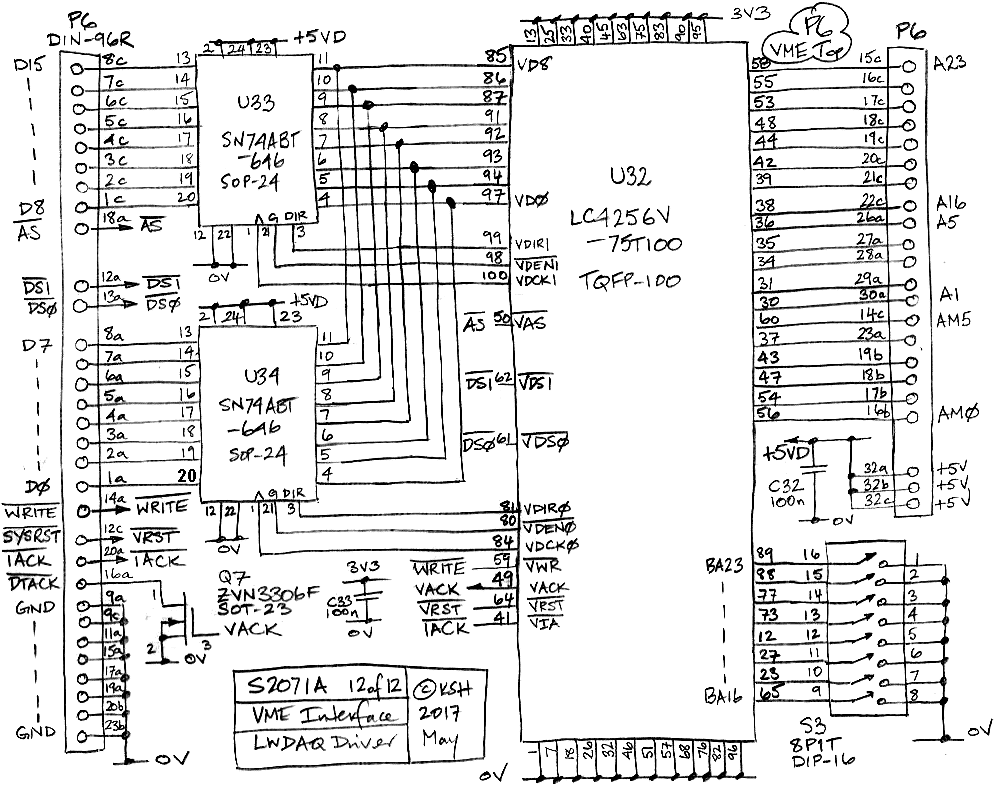 P6
DIN-96R
D15
8c
7c
6c
5c
4c
3c
2c
1c
D8
18a
AS
AS
12a
DS1
DS1
13a
DS0
DS0
D7
8a
7a
6a
5a
4a
3a
2a
1a
D0
14a
WRITE
WRITE
12c
SYSRST
VRST
20a
IACK
IACK
16a
DTACK
9a
GND
9c
11a
15a
17a
19a
20b
23b
GND
0V
2 24 23
+5VD
13
14
15
16
17
18
19
20
U33
SN74ABT
-646
SOP-24
11
10
9
8
7
6
5
4
G DIR
12 22 1 21 3
0V
2 24 23
+5VD
13
14
15
16
17
18
19
20
U34
SN74ABT
-646
SOP-24
11
10
9
8
7
6
5
4
G DIR
12 22 1 21 3
0V
Q7
ZVN3306F
SOT-23
VACK
1
2
3
0V
3V3
C33
100n
0V
13 25 33 40 45 63 75 83 90 95
3V3
85 VD8
86
87
91
92
93
94
97 VD0
99 VDIR1
98 VDEN1
100 VDCK1
AS 50 VAS
DS1 62 VDS1
DS0 61 VDS0
81 VDIR0
80 VDEN0
84 VDCK0
WRITE 59 VWR
VACK 49 VACK
VRST 64 VRST
IACK 41 VIA
U32
LC4256V
-75T100
TQFP-100
0V
1 7 18 26 32 46 51 57 68 76 82 96
P6
VME Top
P6
58 15c A23
55 16c
53 17c
48 18c
44 19c
42 20c
39 21c
38 22c A16
36 26a A5
35 27a
34 28a
31 29a
30 30a A1
60 14c AM5
37 23a
43 19b
47 18b
54 17b
56 16b AM0
+5VD
C32
100n
0V
32a +5V
32b +5V
32c +5V
BA23 89 16 1
88 15 2
77 14 3
73 13 4
12 12 5
27 11 6
23 10 7
BA16 65 9 8
0V
S3
8P1T
DIP-16
S2071A 12of12 ©KSH
VME Interface 2017
LWDAQ Driver May